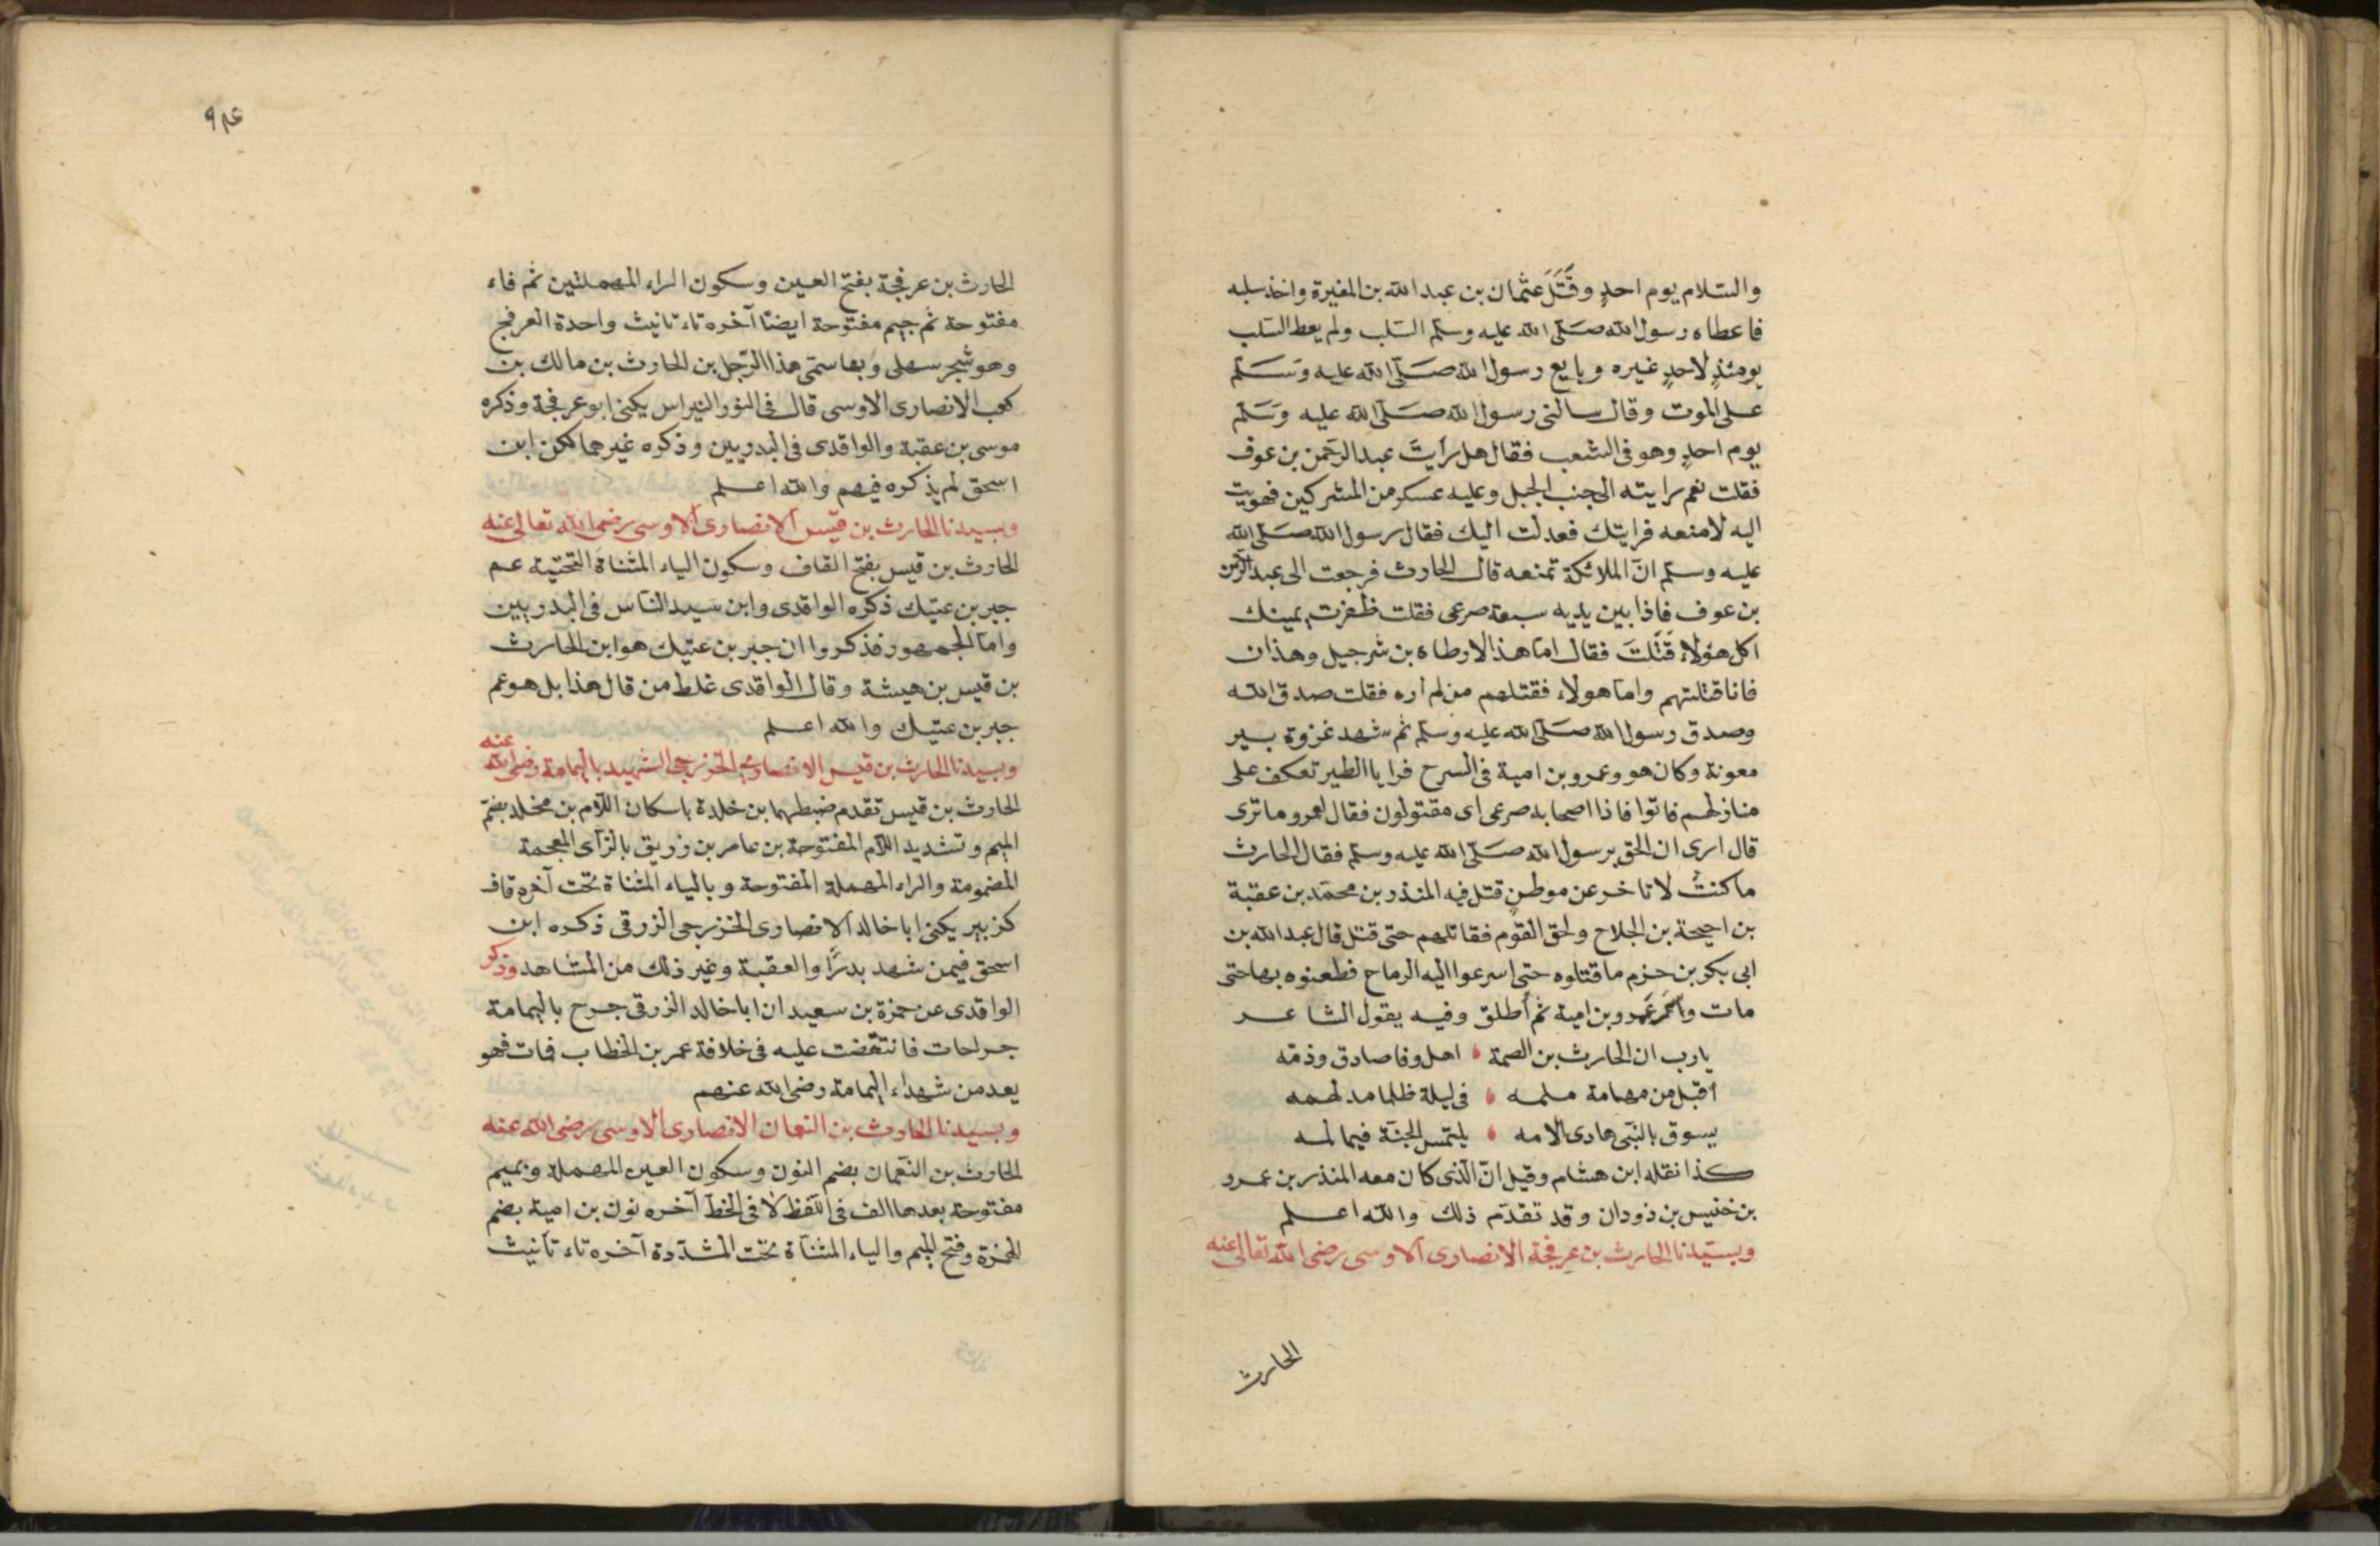 والسّلام يوم احدٍ وقَتَلَ عثمان بن عبد الله بن المغيرة واخذ سلبه
فاعطاه رسول الله صَلّى الله عليه وسلّم السّلب ولم يعط السّلب
يومئذٍ لاحدٍ غيره وبايع رسول الله صَلّى الله عليه وَسَلّم
على الموت وقال سالنى رسول الله صَلّى الله عليه وَسَلّم
يوم احدٍ وهو فى الشعب فقال هل رأيتَ عبد الرَحمن بن عوف
فقلت نعم رايته الى جنب الجبل وعليه عسكر من المشركين فهويت
اليه لامنعه فرايتك فعدلت اليك فقال رسول الله صَلّى الله
عليه وسلّم انّ الملائكة تمنعه قال الحارث فرجعت الى عبد الرّحمن
بن عوف فاذا بين يديه سبعة صرعى فقلت ظفرت يمينك
اكل هؤلاء قَتَلتَ فقال امّا هذا الارطاه بن شرجيل وهذان
فانا قتلتهم واما هولاء فقتلهم من لم اره فقلت صدق الله
وصدق رسول الله صَلّى الله عليه وسلّم ثم شهد غزوة بير
معونة وكان هو وعمرو بن امية فى السرح فرايا الطير تعكف على
منازلهم فاتوا فاذا اصحابه صرعى اى مقتولون فقال لعمرو ما ترى
قال ارى ان الحق برسول الله صَلّى الله عليه وسلّم فقال الحارث
ما كنتُ لاتاخر عن موطنٍ قتل فيه المنذر بن محمّد بن عقبة
بن احيحة بن الجلاح ولحق القوم فقاتلهم حتى قتل قال عبد الله بن
ابى بكر بن حزم ما قتلوه حتى اسرعوا اليه الرماح فطعنوه بها حتى
مات وأسر عَمرو بن امية ثم أطلق وفيه يقول الشاعر
يارب ان الحارث بن الصمة ، اهل وفا صادق وذمّه
أقبل من مهامة ملمه ، فى ليلة ظلما مدلهمه
يسوق بالنبّى هادى الامه ، يلتمس الجنّة فيما لمه
كذا نقله ابن هشام وقيل انّ الّذى كان معه المنذر بن عمرو
بن خنيس بن ذودان وقد تقدّم ذلك والله اعلم
وبسيّدنا الحارث بن عرفجة الانصارى الاوسى رضى الله تعالى عنه
الحارث
الحارث بن عرفجة بفتح العين وسكون الراء المهملتين ثم فاء
مفتوحة ثم جيم مفتوحة ايضًا آخره تاء تانيث واحدة العرفج
وهو شجر سهلى وبها سمّى هذا الرّجل بن الحارث بن مالك بن
كعب الانصارى الاوسى قال فى النور النبراس يكنى ابو عرفجة وذكره
موسى بن عقبة والواقدى فى البدريين وذكره غيرهما لكن ابن
اسحق لم يذكره فيهم والله اعلم
وبسيدنا الحارث بن قيس الانصارى الاوسى رضى الله تعالى عنه
الحارث بن قيس بفتح القاف وسكون الياء المثناة التحتية عم
جبر بن عتيك ذكره الواقدى وابن سيد النّاس فى البدريين
وامّا الجمهور فذكروا ان جبر بن عتيك هو ابن الحارث
بن قيس بن هيشة وقال الواقدى غلط من قال هذا بل هو عم
جبر بن عتيك والله اعلم
وبسيدنا الحارث بن قيس الانصارى الخزرجى الشهيد باليمامة رضى الله عنه
الحارث بن قيس تقدم ضبطهما بن خلدة باسكان اللّام بن مخلد بضمّ
الميم وتشديد اللّام المفتوحة بن عامر بن زريق بالزّاى المعجمة
المضمومة والراء المهملة المفتوحة وبالياء المثناة تحت آخره قاف
كزبير يكنى ابا خالد الانصارى الخزرجى الزرقى ذكره ابن
اسحق فيمن شهد بدرًا والعقبة وغير ذلك من المشاهد وذكر
الواقدى عن حمزة بن سعيد ان ابا خالد الزرقى جرح باليمامة
جراحات فانتقضت عليه فى خلافة عمر بن الخطاب فمات فهو
يعد من شهداء اليمامة رضى الله عنهم
وبسيدنا الحارث بن النعمان الانصارى الاوسى رضى الله عنه
الحارث بن النّعمان بضم النون وسكون العين المهملة وبميم
مفتوحة بعدها الف فى اللّفظ لا فى الخطّ آخره نون بن امية بضم
الهمزة وفتح الميم والياء المثنّاة تحت المشدّدة آخره تاء تأنيث